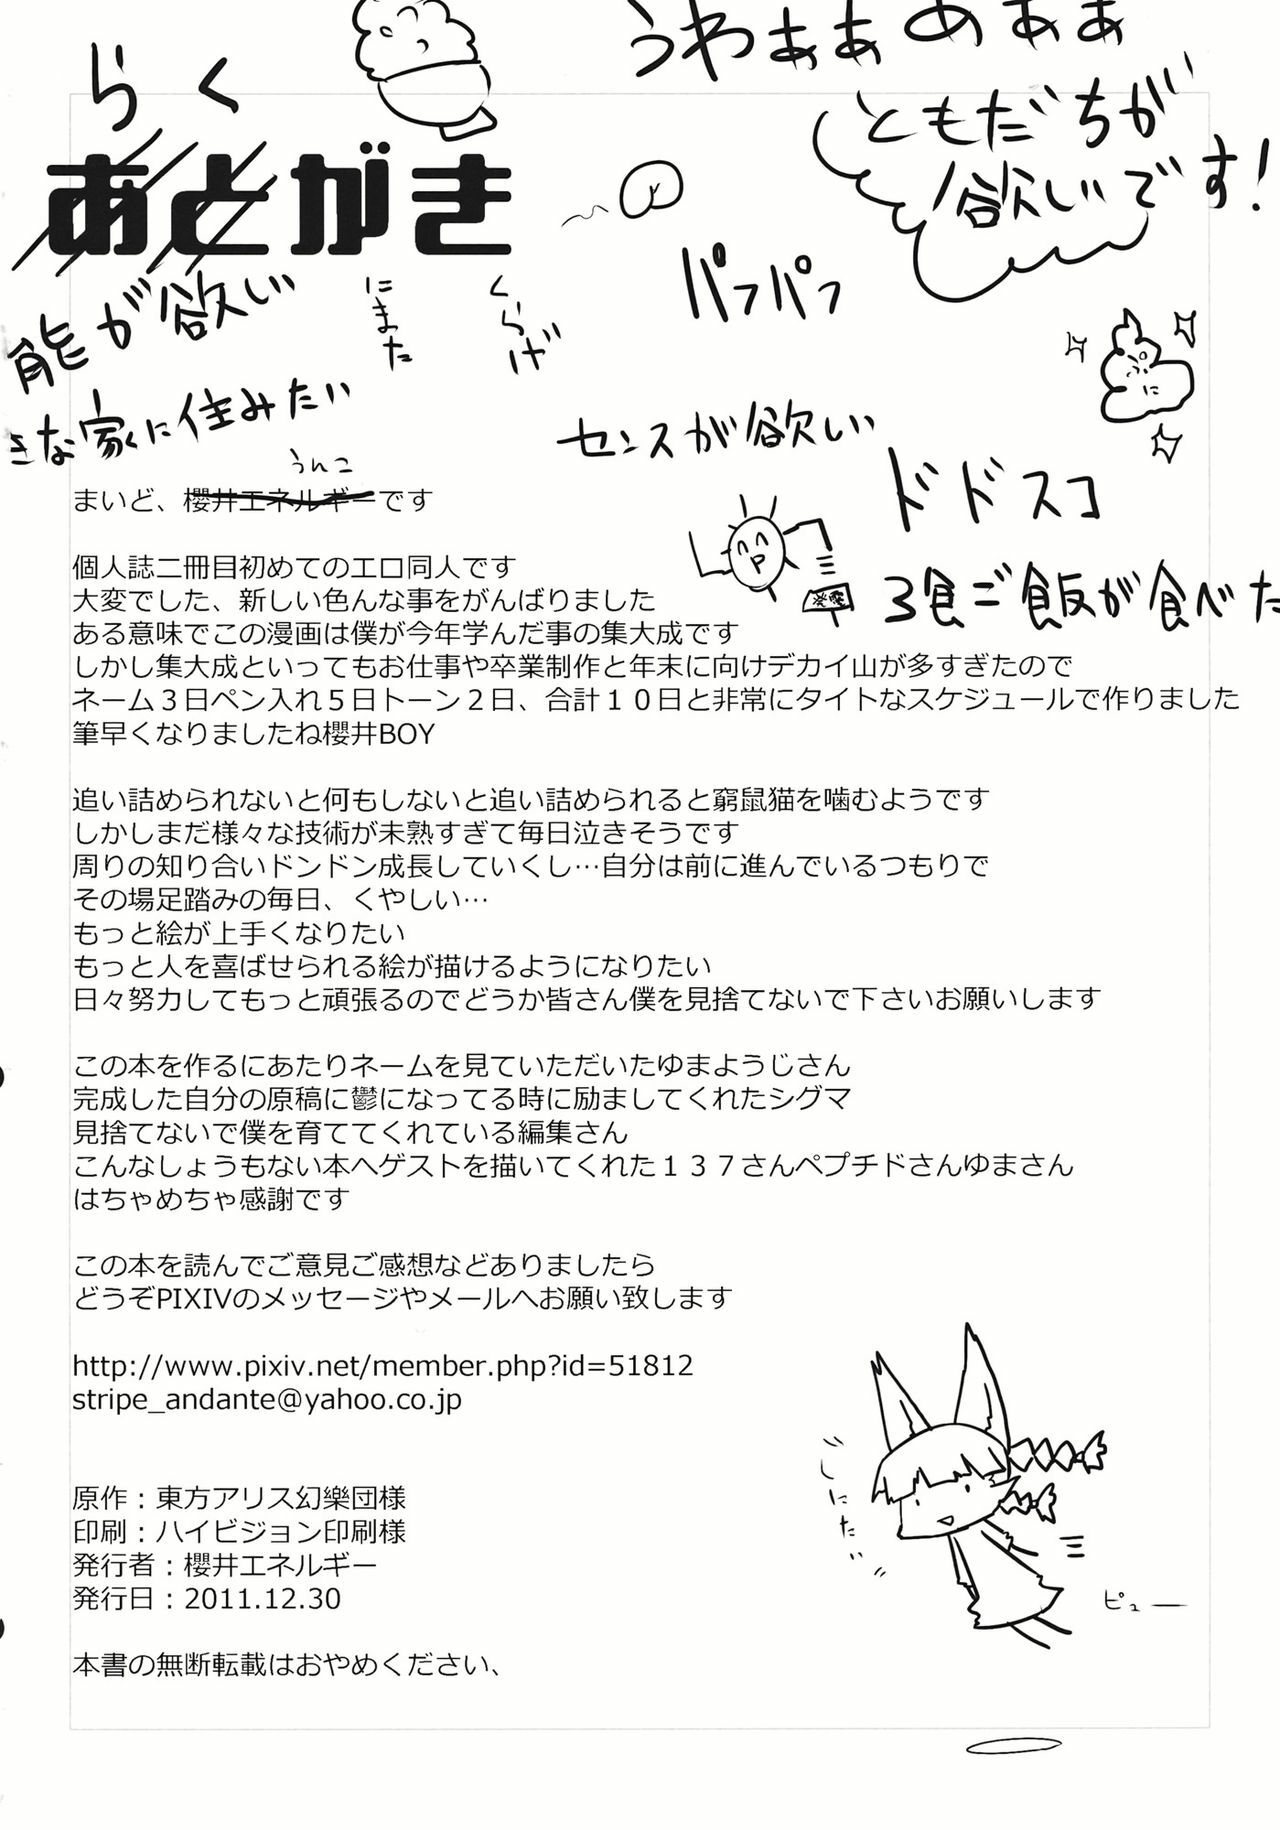 うわぁぁあぁぁ
らく
ともだちが
欲しいです！
あとがき
パフパフ
能が欲しい
にまた
くらげ
に
きな家に住みたい
センスが欲しい
うんこ
まいど、櫻井エネルギーです
ドドスコ
3食ご飯が食べた
個人誌二冊目初めてのエロ同人です
大変でした、新しい色んな事をがんばりました
ある意味でこの漫画は僕が今年学んだ事の集大成です
しかし集大成といってもお仕事や卒業制作と年末に向けデカイ山が多すぎたので
ネーム３日ペン入れ５日トーン２日、合計１０日と非常にタイトなスケジュールで作りました
筆早くなりましたね櫻井BOY
追い詰められないと何もしないと追い詰められると窮鼠猫を噛むようです
しかしまだ様々な技術が未熟すぎて毎日泣きそうです
周りの知り合いドンドン成長していくし…自分は前に進んでいるつもりで
その場足踏みの毎日、くやしい…
もっと絵が上手くなりたい
もっと人を喜ばせられる絵が描けるようになりたい
日々努力してもっと頑張るのでどうか皆さん僕を見捨てないで下さいお願いします
この本を作るにあたりネームを見ていただいたゆまようじさん
完成した自分の原稿に鬱になってる時に励ましてくれたシグマ
見捨てないで僕を育ててくれている編集さん
こんなしょうもない本へゲストを描いてくれた１３７さんペプチドさんゆまさん
はちゃめちゃ感謝です
この本を読んでご意見ご感想などありましたら
どうぞPIXIVのメッセージやメールへお願い致します
http://www.pixiv.net/member.php?id=51812
stripe_andante@yahoo.co.jp
しにたい
原作：東方アリス幻樂団様
印刷：ハイビジョン印刷様
発行者：櫻井エネルギー
発行日：2011.12.30
ピュー
本書の無断転載はおやめください、